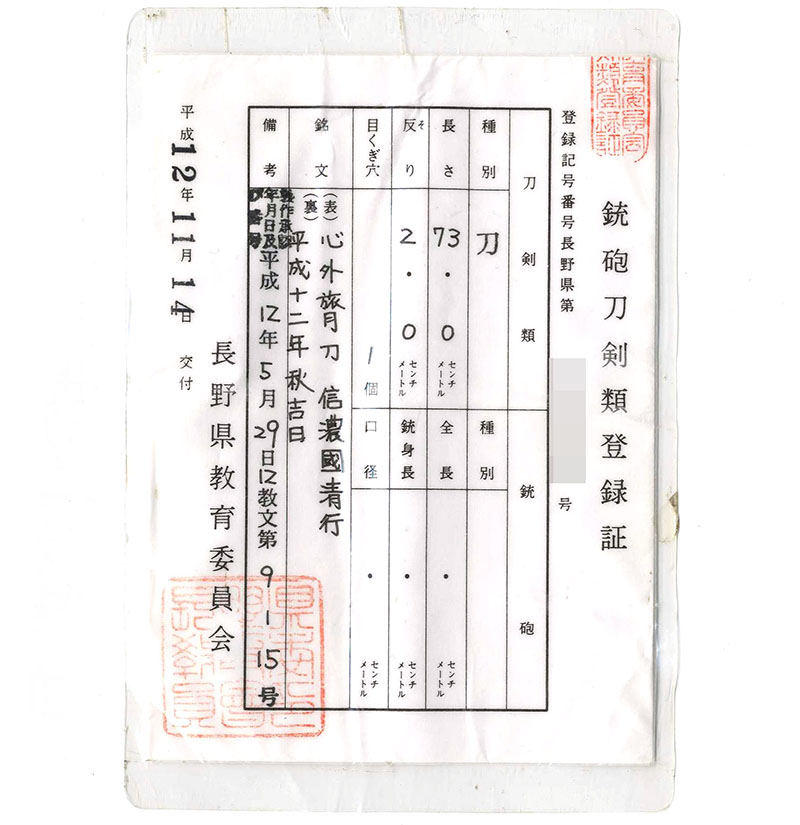 銃砲刀剣類登録証
登録記号番号長野県第
号
刀剣類
銃砲
種別
刀
種別
長さ
73.0
センチメートル
全長
.
センチメートル
反り
そ
2.0
センチメートル
銃身長
.
センチメートル
目くぎ穴
1個
口径
.
センチメートル
銘文
(表)心外旅刀 信濃國清行
(裏)平成十二年秋吉日
備考
製作承認
年月日及
び番号
平成12年5月29日12教文第9-15号
平成12年11月14日交付
長野県教育委員会